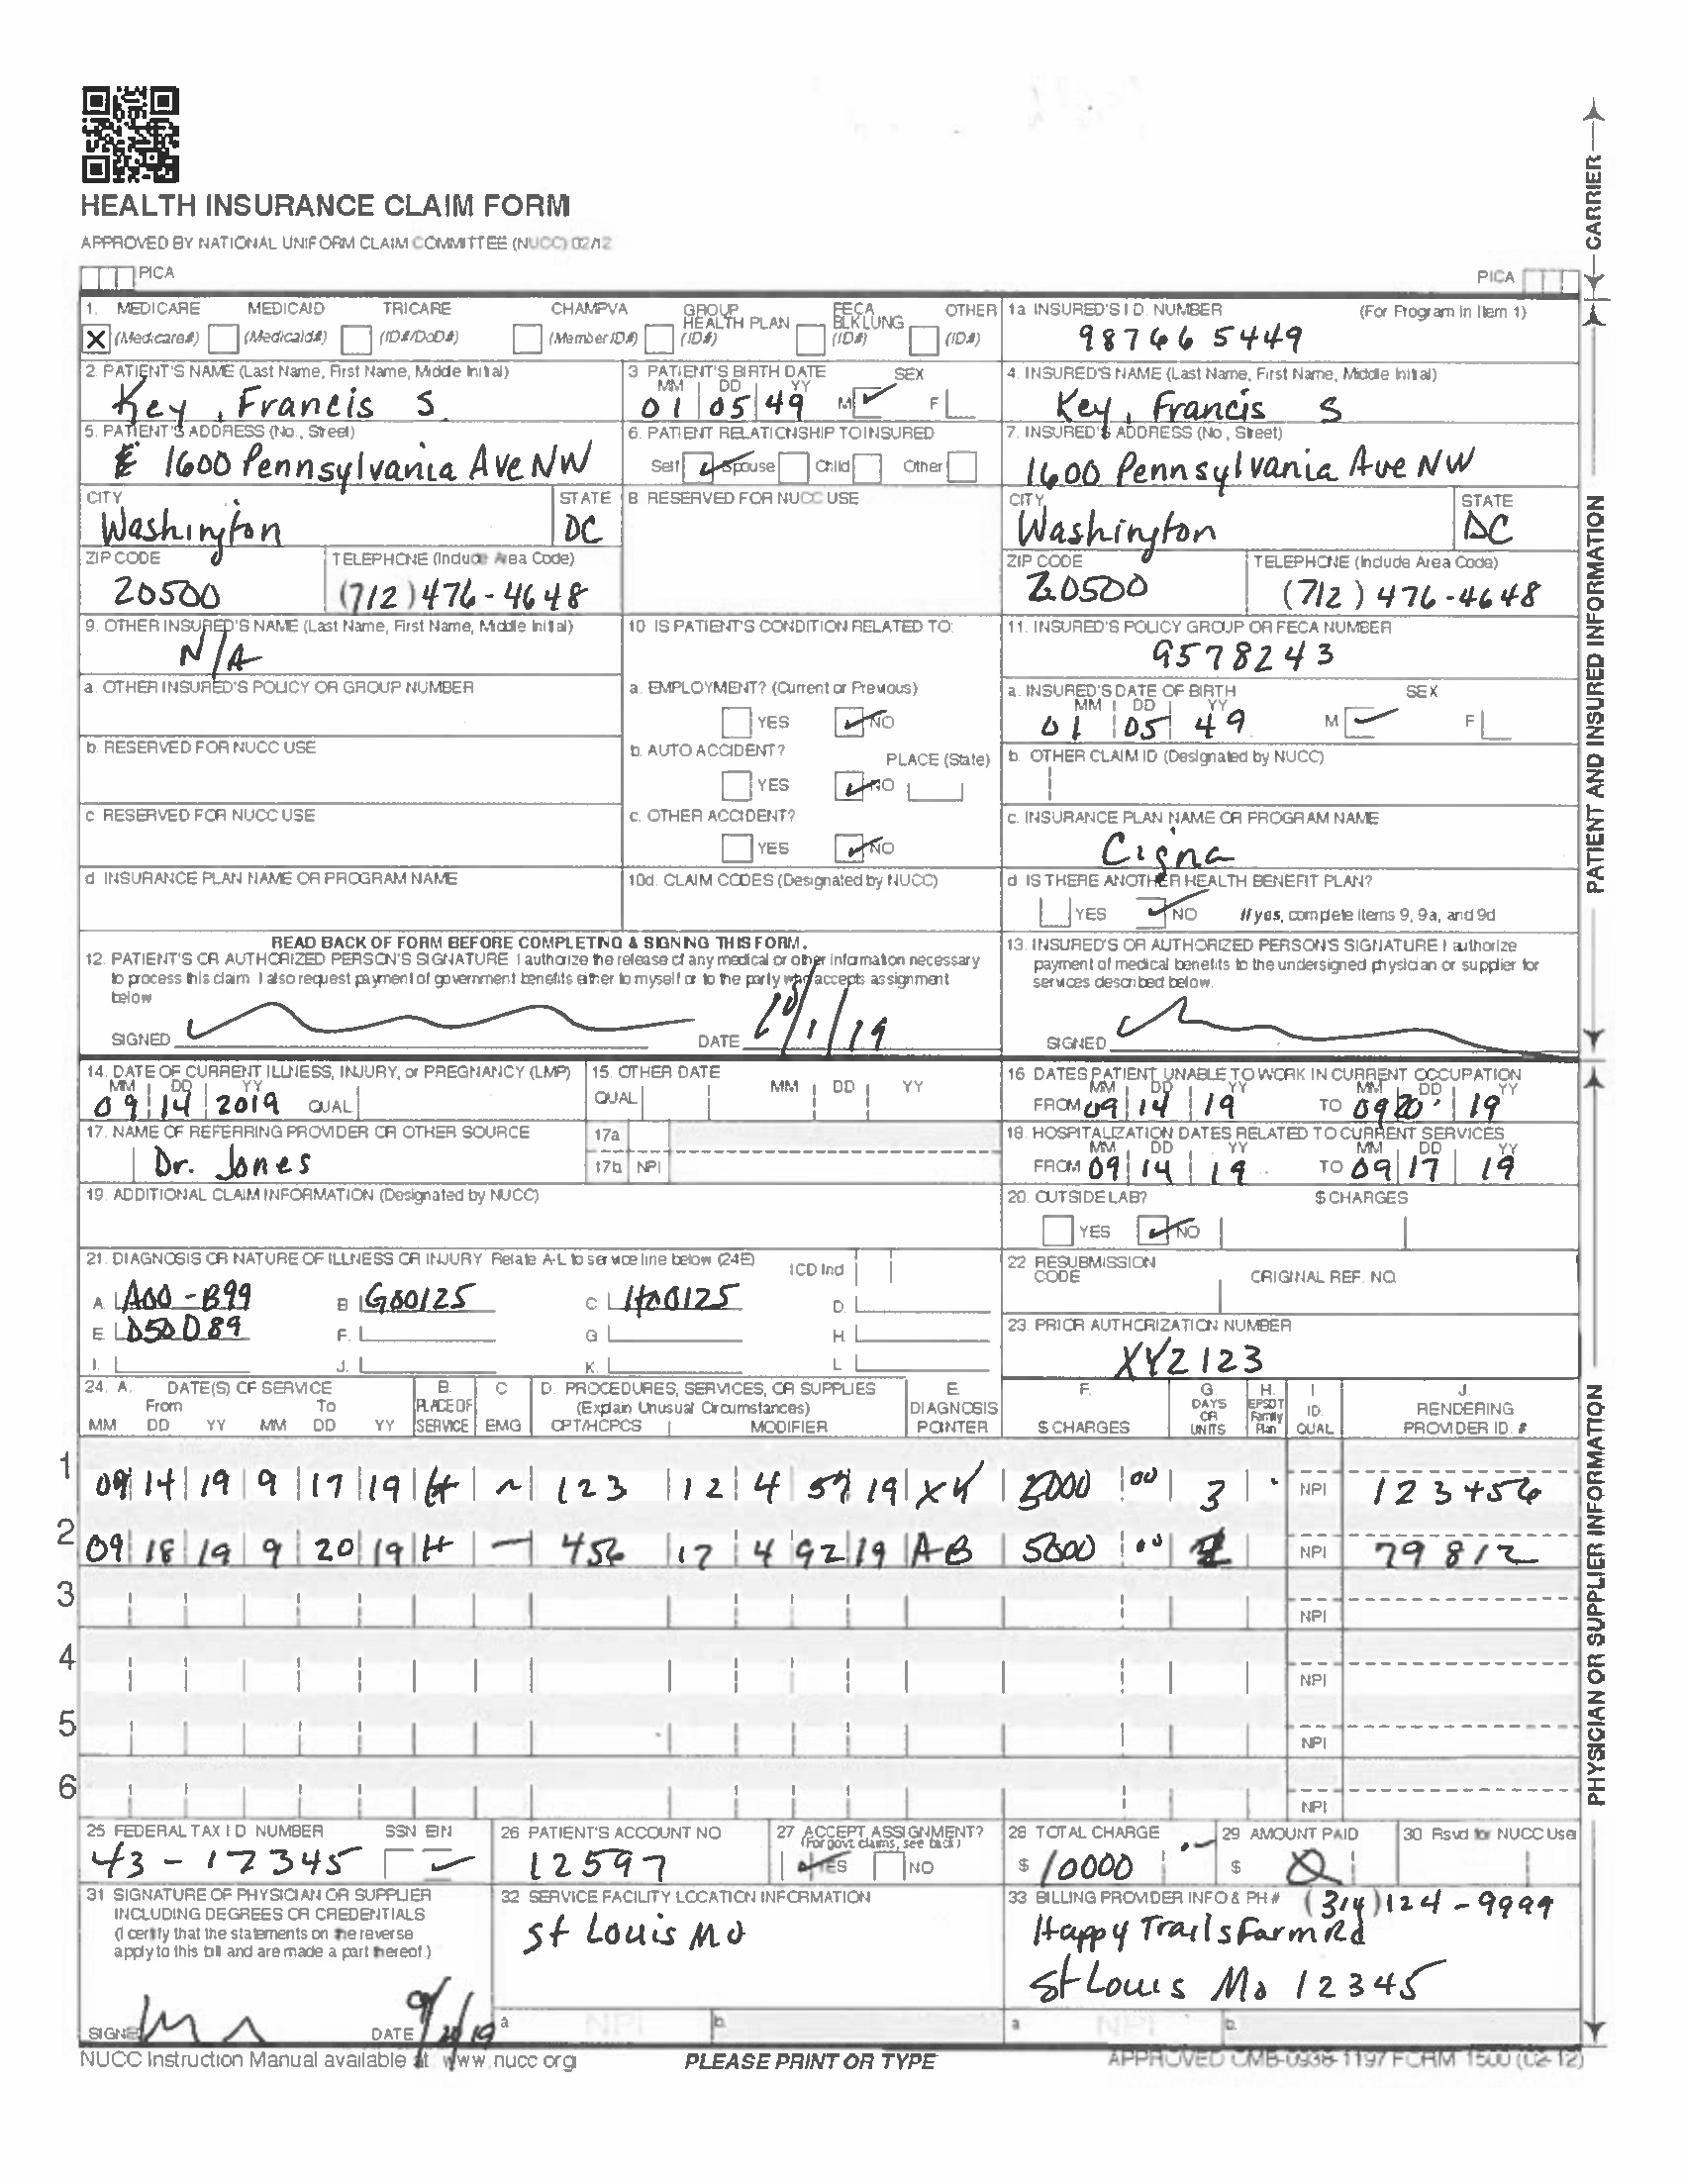 HEALTH INSURANCE CLAIM FORM
APPROVED BY NATIONAL UNIFORM CLAIM COMMITTEE (NUCC) 02/12
PICA PICA
CARRIER
1. MEDICARE MEDICAID TRICARE CHAMPVA GROUP HEALTH PLAN FECA BLK LUNG OTHER
X (Medicare#) (Medicaid#) (ID#/DoD#) (Member ID#) (ID#) (ID#) (ID#)
1a. INSURED'S I.D. NUMBER (For Program in Item 1)
98766 5449
2. PATIENT'S NAME (Last Name, First Name, Middle Initial)
Key, Francis S.
3. PATIENT'S BIRTH DATE SEX
MM DD YY
01 05 49 M F
4. INSURED'S NAME (Last Name, First Name, Middle Initial)
Key, Francis S
5. PATIENT'S ADDRESS (No., Street)
1600 Pennsylvania Ave NW
6. PATIENT RELATIONSHIP TO INSURED
Self Spouse Child Other
7. INSURED'S ADDRESS (No., Street)
1600 Pennsylvania Ave NW
CITY STATE
Washington DC
8 RESERVED FOR NUCC USE
CITY STATE
Washington DC
ZIP CODE TELEPHONE (Include Area Code)
20500 (712) 476-4648
ZIP CODE TELEPHONE (Include Area Code)
20500 (712) 476-4648
9. OTHER INSURED'S NAME (Last Name, First Name, Middle Initial)
N/A
10 IS PATIENT'S CONDITION RELATED TO:
11. INSURED'S POLICY GROUP OR FECA NUMBER
9578243
a. OTHER INSURED'S POLICY OR GROUP NUMBER
a. EMPLOYMENT? (Current or Previous)
YES NO
a. INSURED'S DATE OF BIRTH SEX
MM DD YY
01 05 49 M F
b. RESERVED FOR NUCC USE
b. AUTO ACCIDENT? PLACE (State)
YES NO
b. OTHER CLAIM ID (Designated by NUCC)
c RESERVED FOR NUCC USE
c. OTHER ACCIDENT?
YES NO
c. INSURANCE PLAN NAME OR PROGRAM NAME
Cigna
d INSURANCE PLAN NAME OR PROGRAM NAME
10d. CLAIM CODES (Designated by NUCC)
d IS THERE ANOTHER HEALTH BENEFIT PLAN?
YES NO If yes, complete items 9, 9a, and 9d
READ BACK OF FORM BEFORE COMPLETING & SIGNING THIS FORM.
12. PATIENT'S OR AUTHORIZED PERSON'S SIGNATURE I authorize the release of any medical or other information necessary
to process this claim I also request payment of government benefits either to myself or to the party who accepts assignment
below
SIGNED DATE 10/1/19
13. INSURED'S OR AUTHORIZED PERSON'S SIGNATURE I authorize
payment of medical benefits to the undersigned physician or supplier for
services described below.
SIGNED
PATIENT AND INSURED INFORMATION
14. DATE OF CURRENT ILLNESS, INJURY, or PREGNANCY (LMP)
MM DD YY
09 14 2019 QUAL
15. OTHER DATE
QUAL MM DD YY
16 DATES PATIENT UNABLE TO WORK IN CURRENT OCCUPATION
MM DD YY MM DD YY
FROM 09 14 19 TO 09 20 19
17. NAME OF REFERRING PROVIDER OR OTHER SOURCE
Dr. Jones
17a
17b NPI
18. HOSPITALIZATION DATES RELATED TO CURRENT SERVICES
MM DD YY MM DD YY
FROM 09 14 19 TO 09 17 19
19. ADDITIONAL CLAIM INFORMATION (Designated by NUCC)
20. OUTSIDE LAB? $ CHARGES
YES NO
21. DIAGNOSIS OR NATURE OF ILLNESS OR INJURY Relate A-L to service line below (24E) ICD Ind
A. A00-B99 B G00125 C H00125 D.
E. D50D89 F. G H.
I. J. K. L
22. RESUBMISSION CODE ORIGINAL REF. NO.
23. PRIOR AUTHORIZATION NUMBER
XYZ123
24. A. DATE(S) OF SERVICE B. C D. PROCEDURES, SERVICES, OR SUPPLIES E. F. G. H. I J.
From To PLACE OF (Explain Unusual Circumstances) DIAGNOSIS DAYS OR EPSDT Family ID. RENDERING
MM DD YY MM DD YY SERVICE EMG CPT/HCPCS MODIFIER POINTER $ CHARGES UNITS Plan QUAL PROVIDER ID. #
1 09 14 19 9 17 19 H 123 12 4 57 19 XY 5000 00 3 NPI 123456
2 09 18 19 9 20 19 H — 456 17 4 92 19 AB 5000 00 NPI 79812
3 NPI
4 NPI
5 NPI
6 NPI
25 FEDERAL TAX I D NUMBER SSN EIN
43-12345
26 PATIENT'S ACCOUNT NO
12597
27 ACCEPT ASSIGNMENT?
(For govt. claims, see back)
YES NO
28 TOTAL CHARGE
$ 10000
29 AMOUNT PAID
$ 0
30 Rsvd for NUCC Use
31 SIGNATURE OF PHYSICIAN OR SUPPLIER
INCLUDING DEGREES OR CREDENTIALS
(I certify that the statements on the reverse
apply to this bill and are made a part thereof.)
SIGNED DATE
32 SERVICE FACILITY LOCATION INFORMATION
St Louis Mo
a NPI b.
33 BILLING PROVIDER INFO & PH # (314) 124-9999
Happy Trails Farm Rd
St Louis Mo 12345
a NPI b.
PHYSICIAN OR SUPPLIER INFORMATION
NUCC Instruction Manual available at www.nucc.org
PLEASE PRINT OR TYPE
APPROVED OMB-0938-1197 FORM 1500 (02-12)